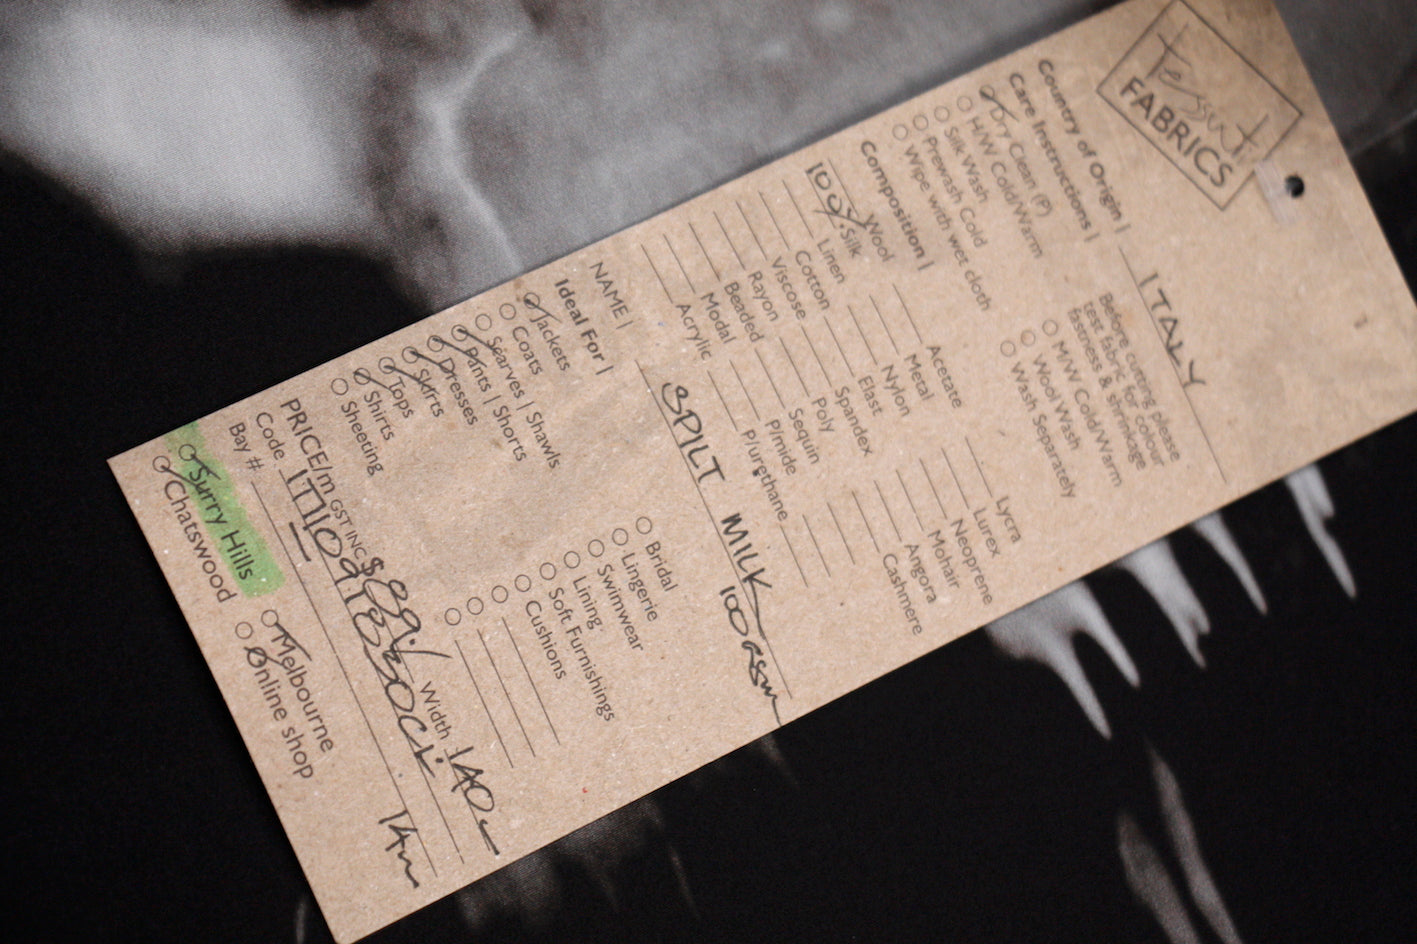 Tessuti
FABRICS
Country of Origin | ITALY
Care Instructions |
Before cutting please
test fabric for colour
fastness & shrinkage
Dry Clean (P)
H/W Cold/Warm
Silk Wash
Prewash Cold
Wipe with wet cloth
M/W Cold/Warm
Wool Wash
Wash Separately
Composition |
Wool Acetate Lycra
100% Silk Metal Lurex
Linen Nylon Neoprene
Cotton Elast Mohair
Viscose Spandex Angora
Rayon Poly Cashmere
Beaded Sequin
Modal P/mide
Acrylic P/urethane
NAME | SPILT MILK 100GSM
Ideal For |
Jackets Bridal
Coats Lingerie
Scarves | Shawls Swimwear
Pants | Shorts Lining
Dresses Soft Furnishings
Skirts Cushions
Tops
Shirts
Sheeting
PRICE/m GST INC $89.- Width 140
Code
Bay # 14m
Surry Hills Melbourne
Chatswood Online shop